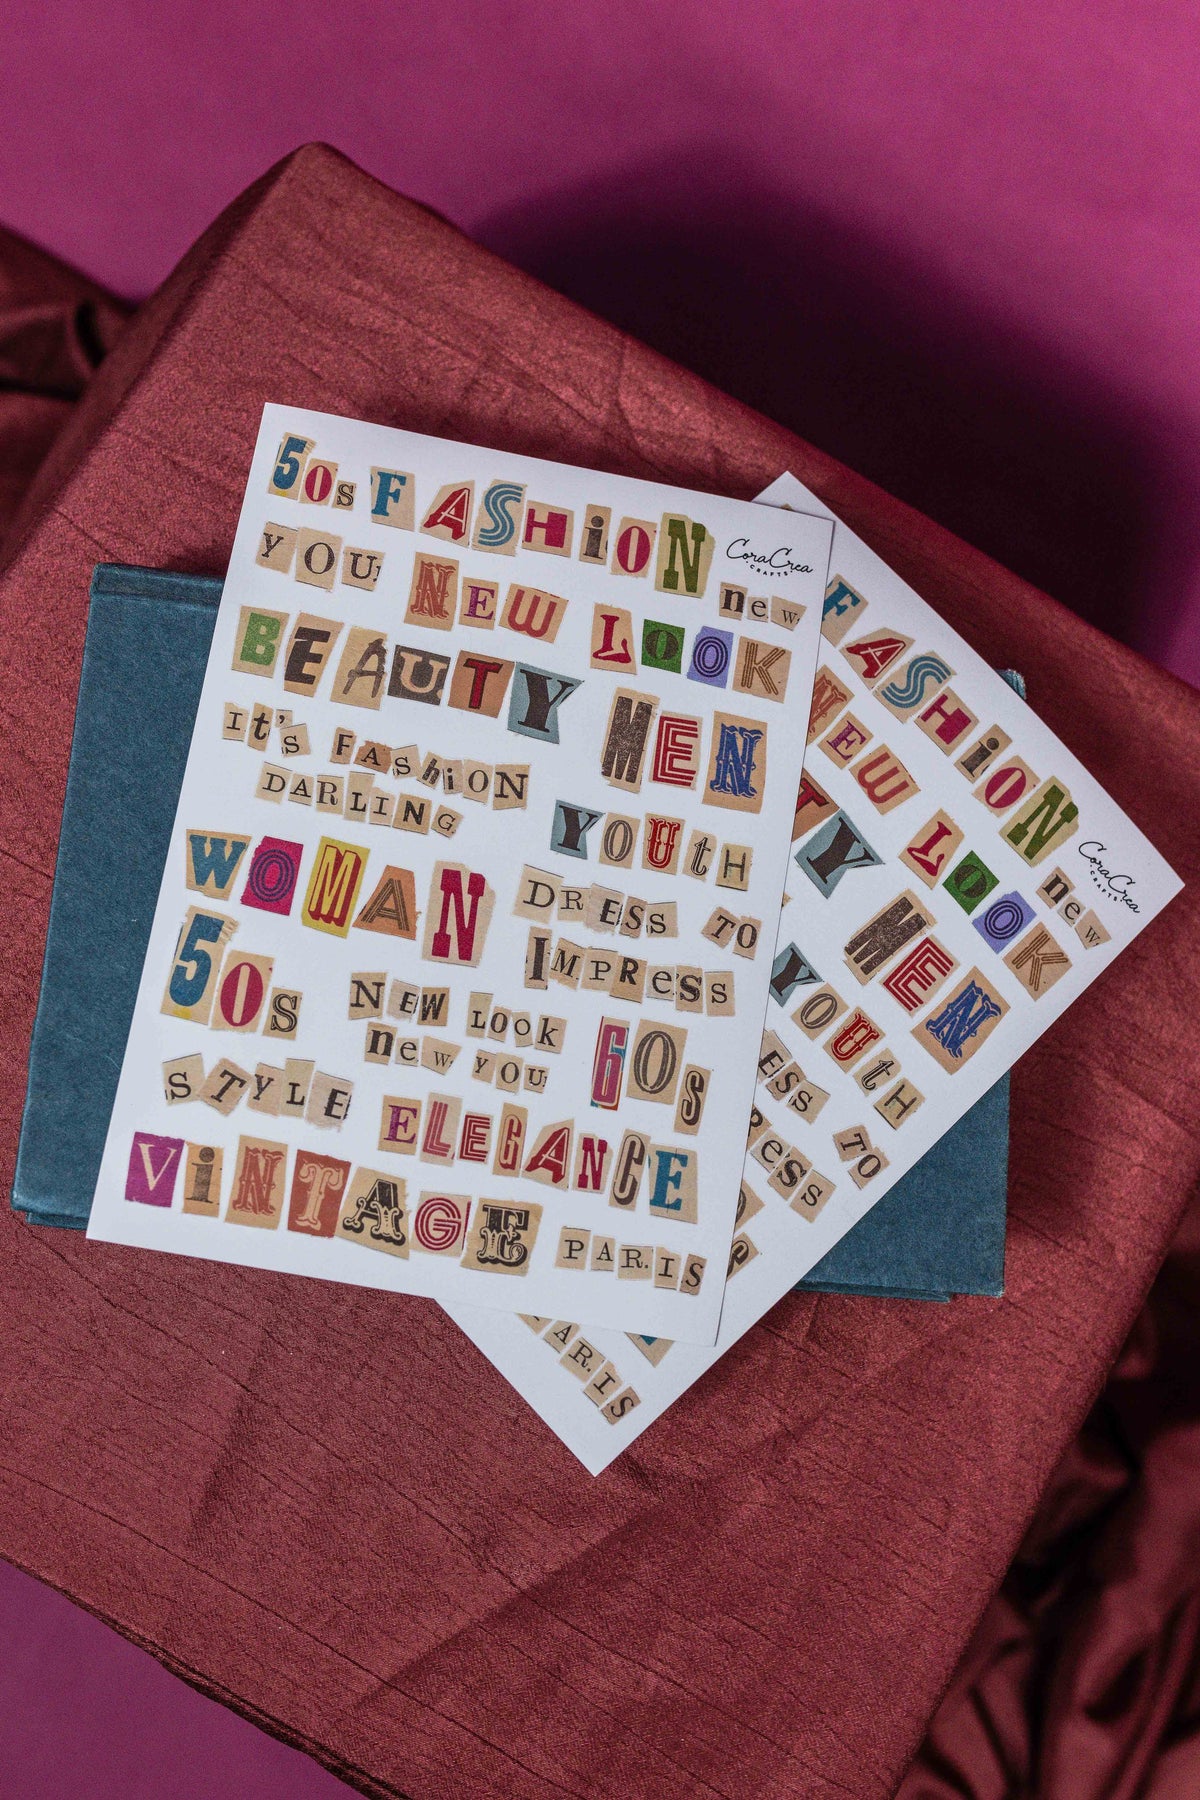 50s FASHION
CoraCrea
CRAFTS
YOU NEW LOOK new
BEAUTY MEN
It's FAShiON
DARLING
YOUtH
WOMAN DRESS TO
IMPResS
50s NEW LOOK 60s
new YOU
STYLE ELEGANCE
ViNTAGE PAR.IS
FASHiON
CoraCrea
CRAFTS
NEW LOOK new
TY MEN
YOUtH
ESS TO
ResS
AR.IS